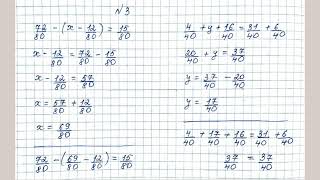 №3
72/80 - (x - 12/80) = 15/80
x - 12/80 = 72/80 - 15/80
x - 12/80 = 57/80
x = 57/80 + 12/80
x = 69/80
72/80 - (69/80 - 12/80) = 15/80
4/40 + y + 16/40 = 31/40 + 6/40
20/40 + y = 37/40
y = 37/40 - 20/40
y = 17/40
4/40 + 17/40 + 16/40 = 31/40 + 6/40
37/40 = 37/40